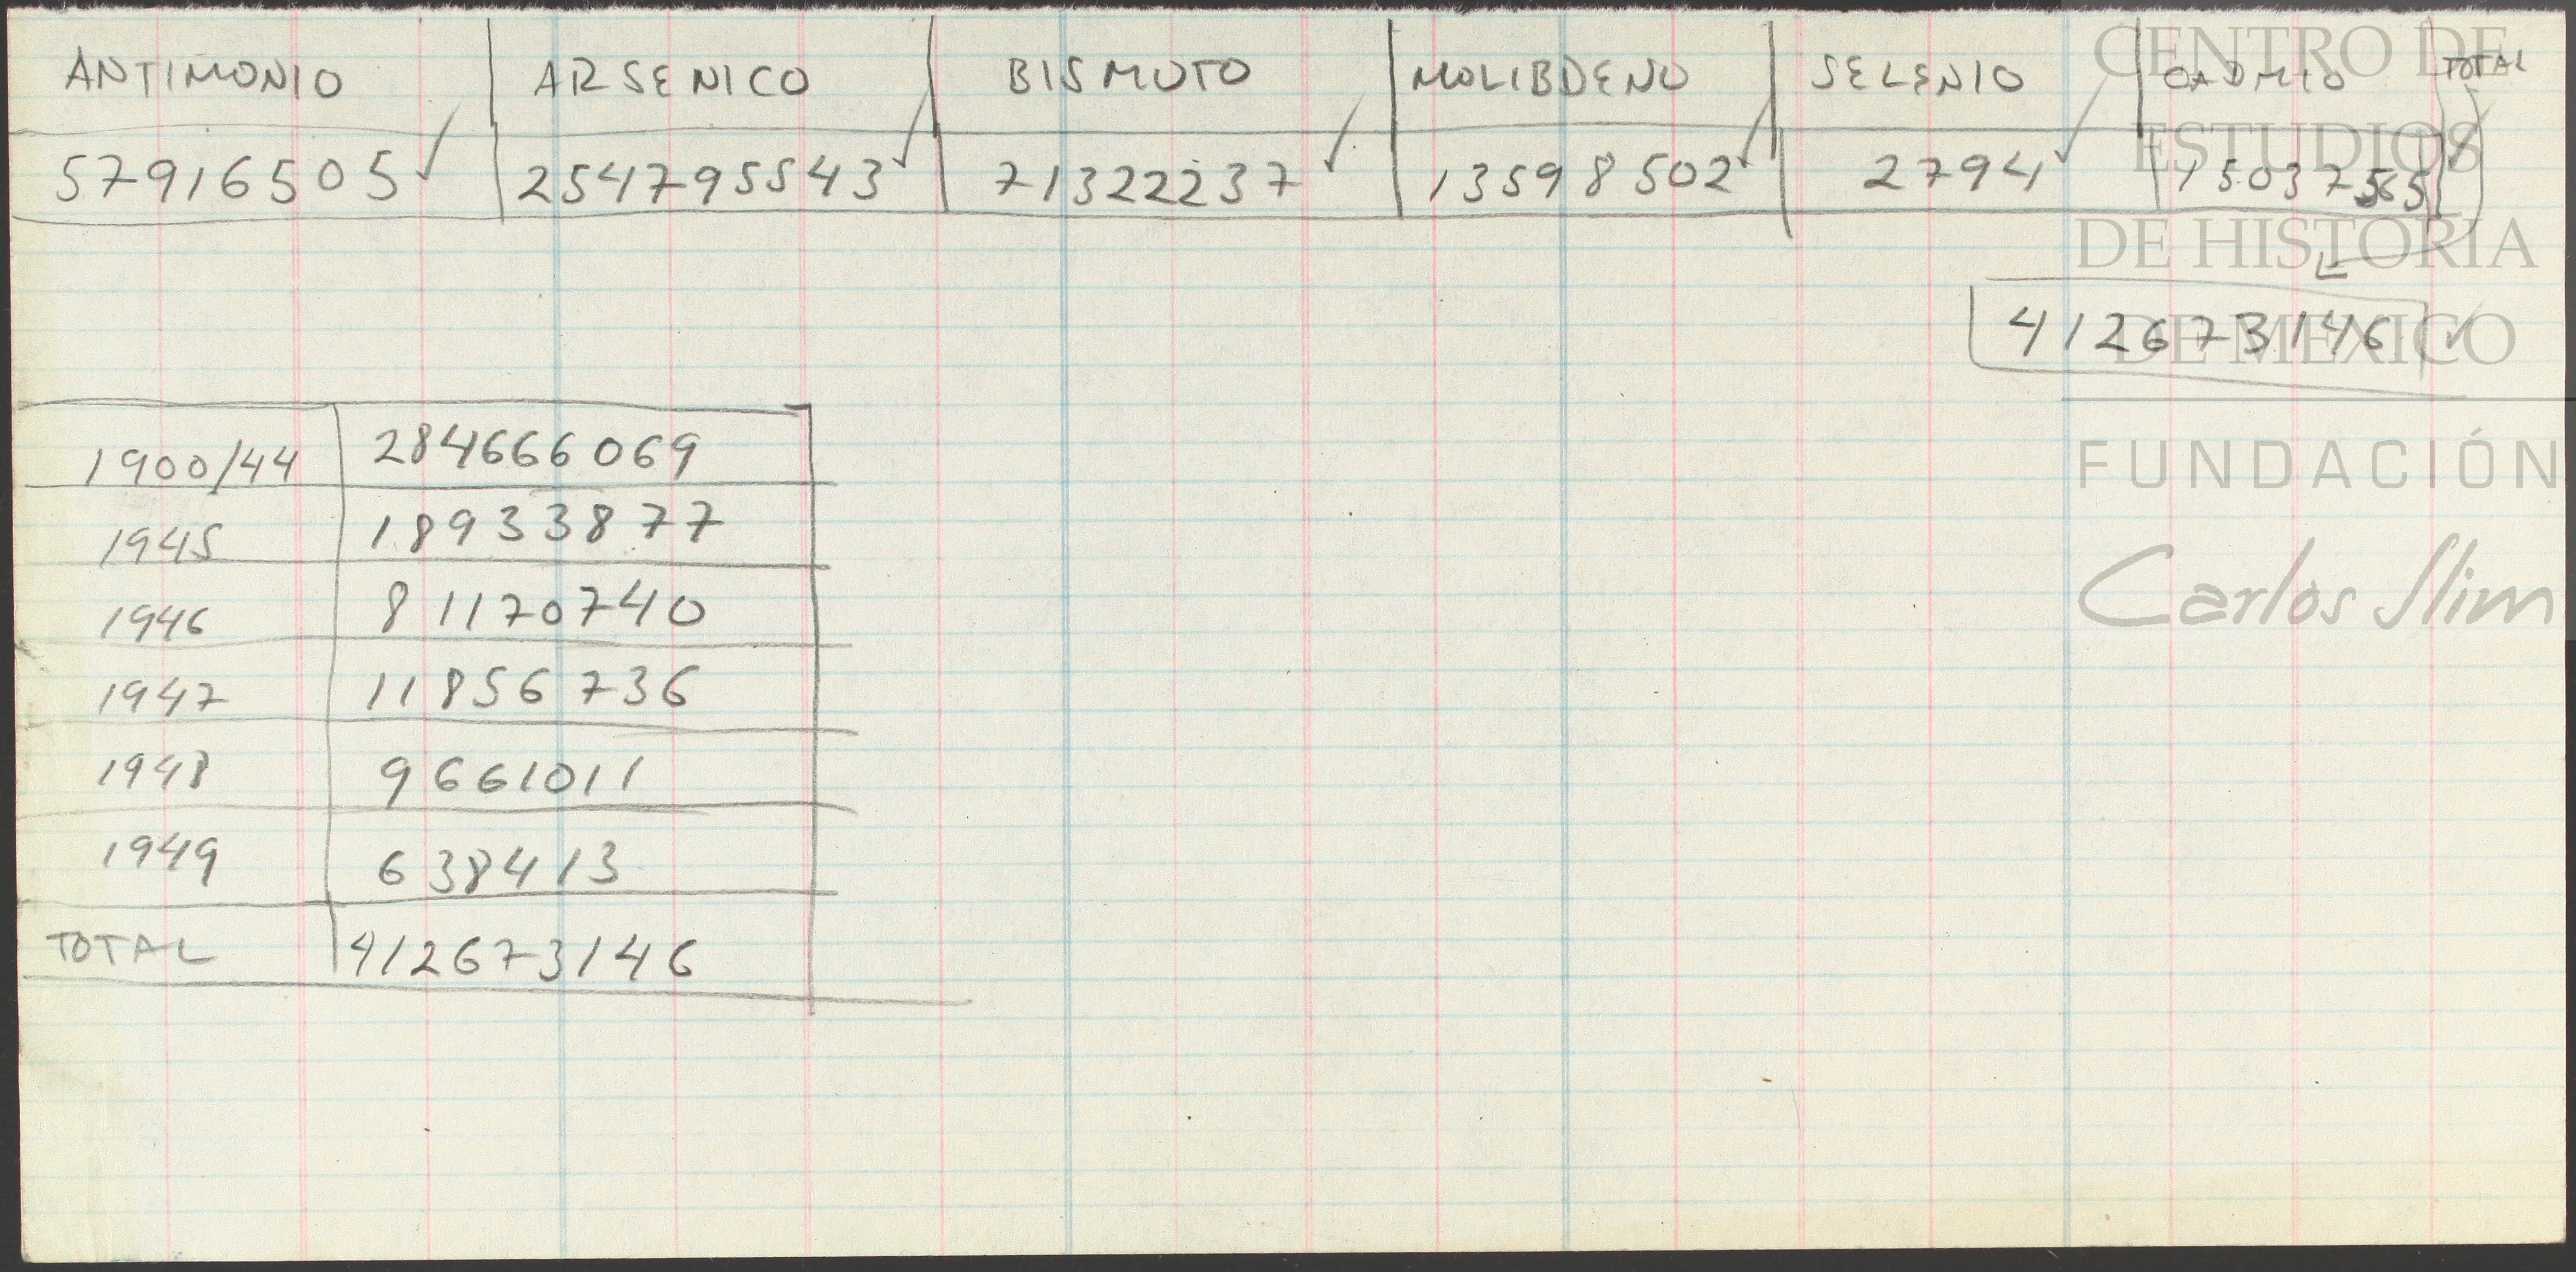 ANTIMONIO ARSENICO BISMUTO MOLIBDENO SELENIO CADMIO TOTAL
57916505 254795543 71322237 13598502 2794 15037565
412673146
1900/44 284666069
1945 18933877
1946 81170740
1947 11856736
1948 9661011
1949 638413
TOTAL 412673146
CENTRO DE
ESTUDIOS
DE HISTORIA
DE MEXICO
FUNDACIÓN
Carlos Slim